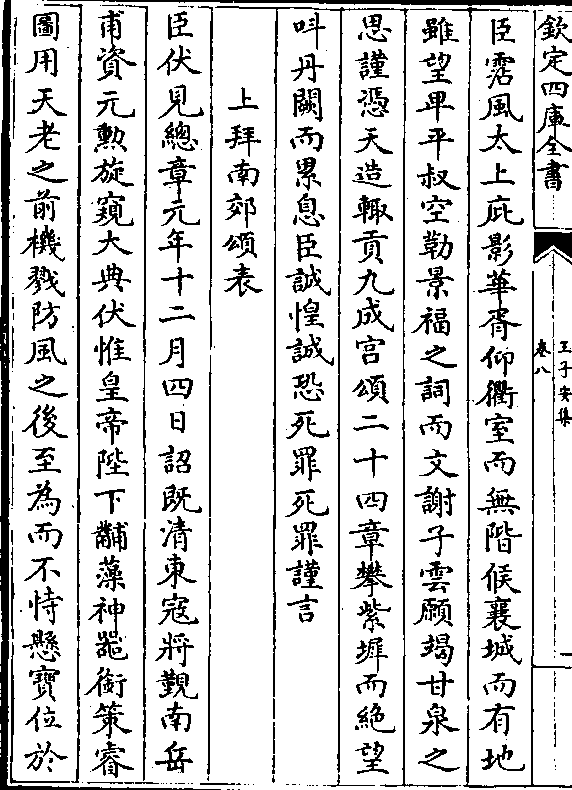 欽定四庫全書
王子安集
卷八
一
臣霑風太上庇影華胥仰衢室而無階候襄城而有地
雖望卑平叔空勒景福之詞而文謝子雲願竭甘泉之
思謹憑天造輙貢九成宫頌二十四章攀紫墀而絶望
呌丹闕而累息臣誠惶誠恐死罪死罪謹言
上拜南郊頌表
臣伏見總章元年十二月四日詔既清東寇將覲南岳
甫資元勲旋窺大典伏惟皇帝陛下黼藻神噐銜策睿
圖用天老之前機戮防風之後至為而不恃懸寶位於